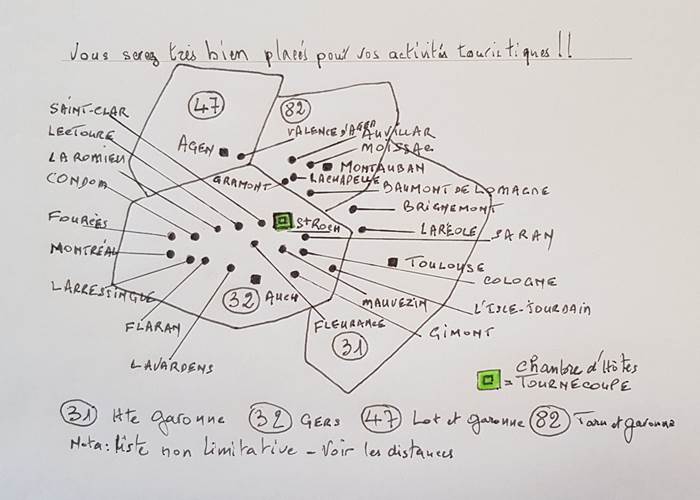 Vous serez très bien placés pour vos activités touristiques !!
47
82
SAINT-CLAR
LECTOURE
LA ROMIEU
CONDOM
FOURCÈS
MONTRÉAL
LARRESSINGLE
FLARAN
LAVARDENS
AGEN
VALENCE D'AGEN
AUVILLAR
MOISSAC
MONTAUBAN
GRAMONT
LACHAPELLE
BAUMONT DE LOMAGNE
BRIGNEMONT
St ROCH
LARÉOLE
SARAN
TOULOUSE
COLOGNE
32
AUCH
MAUVEZIN
L'ISLE-JOURDAIN
FLEURANCE
GIMONT
31
Chambre d'Hôtes
= TOURNECOUPE
31 Hte Garonne 32 GERS 47 Lot et Garonne 82 Tarn et Garonne
Nota: liste non limitative - Voir les distances